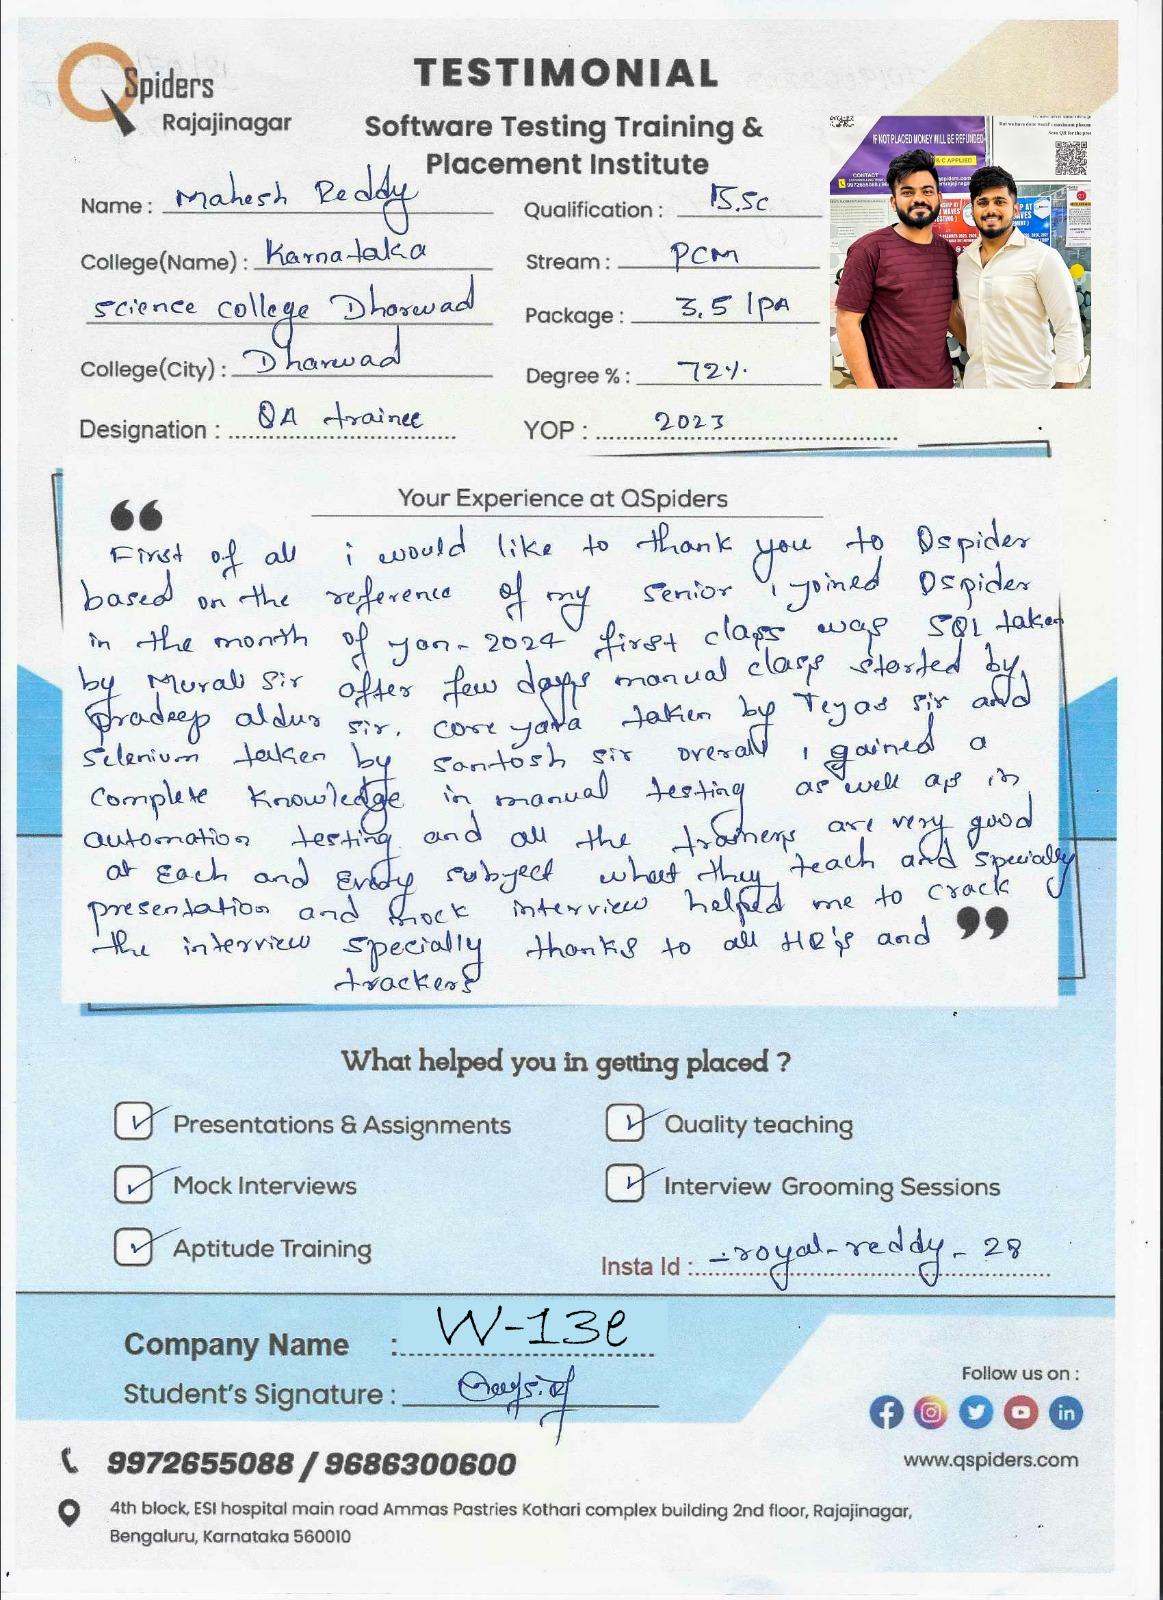 QSpiders
Rajajinagar
TESTIMONIAL
Software Testing Training &
Placement Institute
IF NOT PLACED MONEY WILL BE REFUNDED
& C APPLIED
CONTACT
Name : Mahesh Reddy
Qualification : B.Sc
College(Name) : Karnataka
Stream : PCM
science college Dharwad
Package : 3.5 lPA
College(City) : Dharwad
Degree % : 72%.
Designation : QA trainee
YOP : 2023
Your Experience at QSpiders
“
First of all i would like to thank you to Qspider
based on the reference of my senior i joined Qspider
in the month of jan- 2024 first class was SQL taken
by Murali sir after few days manual class started by
pradeep aldur sir. core java taken by Tejas sir and
selenium taken by santosh sir overall i gained a
complete knowledge in manual testing as well as in
automation testing and all the trainers are very good
at Each and Every subject what they teach and specially
presentation and mock interview helped me to crack
the interview specially thanks to all HR's and
trackers
”
What helped you in getting placed ?
Presentations & Assignments
Quality teaching
Mock Interviews
Interview Grooming Sessions
Aptitude Training
Insta Id : _royal_reddy_28
Company Name : W-13e
Student's Signature :
Follow us on :
9972655088 / 9686300600
www.qspiders.com
4th block, ESI hospital main road Ammas Pastries Kothari complex building 2nd floor, Rajajinagar,
Bengaluru, Karnataka 560010